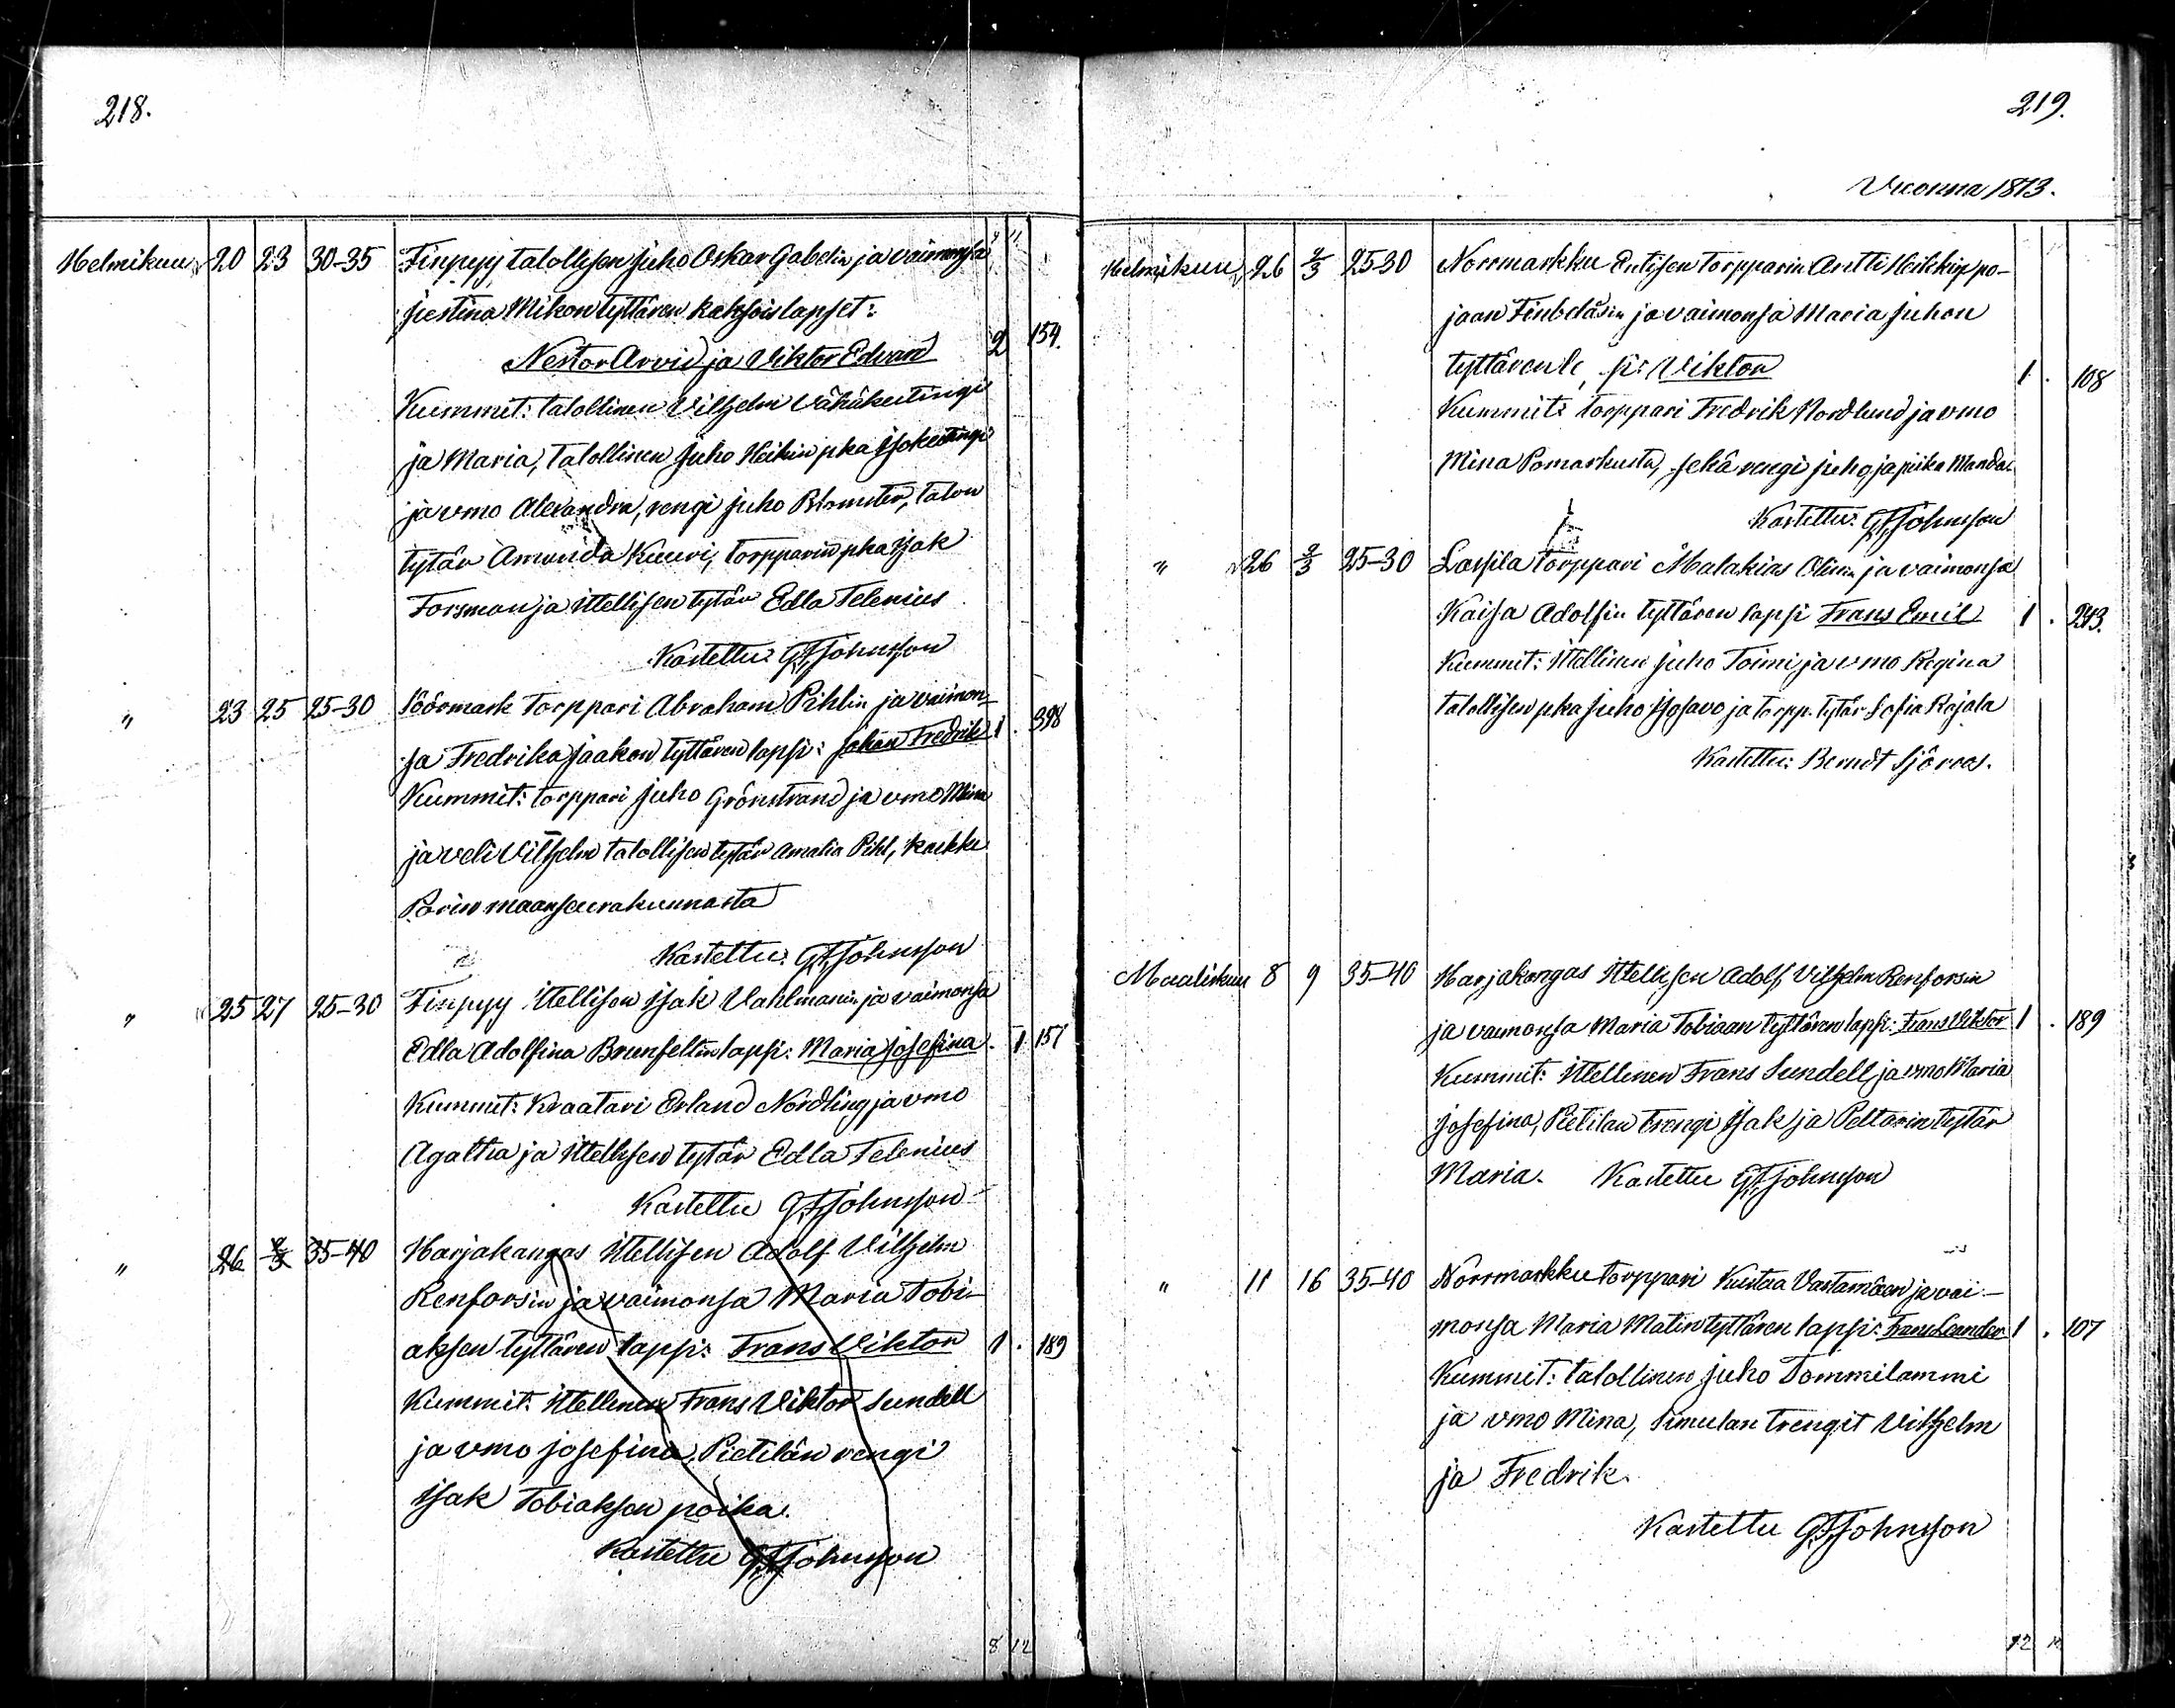 218.
Helmikuu 20 23 30-35 Finpyy talollisen Juho Oskar Gabelin ja vaimonsa
Justina Mikon tyttären kaksoislapset:
Nestor Arvid ja Viktor Edvard 2 154.
Kummit: talollinen Vilhelm Vähäkeitingi
ja Maria, talollinen Juho Heikin pka Isokeitingi
ja vmo Alexandra, rengi Juho Blomster, talon
tytär Amanda Kuuri, torpparin pka Isak
Forsman ja ittellisen tytär Edla Telenius
Kastettu: G.F. Johnsson
" 23 25 25-30 Söörmark torppari Abraham Pihlin ja vaimon-
sa Fredrika Jaakon tyttären lapsi: Johan Fredrik 1 . 398
Kummit: torppari Juho Grönstrand ja vmo Mina
ja veli Vilhelm talollisen tytär Amalia Pihl, kaikki
Porin maanseurakunnasta
Kastettu: G.F. Johnsson
" 25 27 25-30 Finpyy ittellisen Isak Vahlmanin ja vaimonsa
Edla Adolfina Brunfeltin lapsi: Maria Josefina . 1 157
Kummit: Kraatari Erland Nordling ja vmo
Agatha ja ittellisen tytär Edla Telenius
Kastettu G.F. Johnsson
" 26 2/3 35-40 Harjakangas ittellisen Adolf Vilhelm
Renforsin ja vaimonsa Maria Tobi-
aksen tyttären lapsi: Frans Viktor 1 . 189
Kummit: ittellinen Frans Viktor Sundell
ja vmo Josefina, Pietilän rengi
Isak Tobiaksen poika.
Kastettu G.F. Johnsson
8 12
219.
Vuonna 1873.
Helmikuu 26 2/3 25-30 Norrmarkku Entisen torpparin Antti Heikkip po-
jaan ja vaimonsa Maria Juhon
Viktor 1 . 108
Kummit: torppari Fredrik Nordlund ja vmo
Mina Pomarkusta, sekä rengi Juho ja piika Manda
Kastettu: G.F. Johnsson
" 26 2/3 25-30 Lassila torppari Malakias Olinin ja vaimonsa
Kaisa Adolfin tyttären lapsi Frans Emil 1 . 293.
Kummit: ittellinen Juho Toimi ja vmo Regina
talollisen pka Juho Isosavo ja torpp. tytär Sofia Rajala
Kastettu: Berndt Sjöroos.
Maaliskuu 8 9 35-40 Harjakangas ittellisen Adolf Vilhelm Renforsin
ja vaimonsa Maria Tobiaan tyttären lapsi: Frans Viktor 1 . 189
Kummit: ittellinen Frans Sundell ja vmo Maria
Josefina, Pietilän trengi Isak ja Peltarin tytär
Maria. Kastettu G.F. Johnsson
" 11 16 35-40 Norrmarkku torppari Kustaa Vastamäen ja vai-
monsa Maria Matin tyttären lapsi: Frans Leander 1 . 107
Kummit: talollinen Juho Tommilammi
ja vmo Mina, Simulan trengit Vilhelm
ja Fredrik.
Kastettu G.F. Johnsson
12